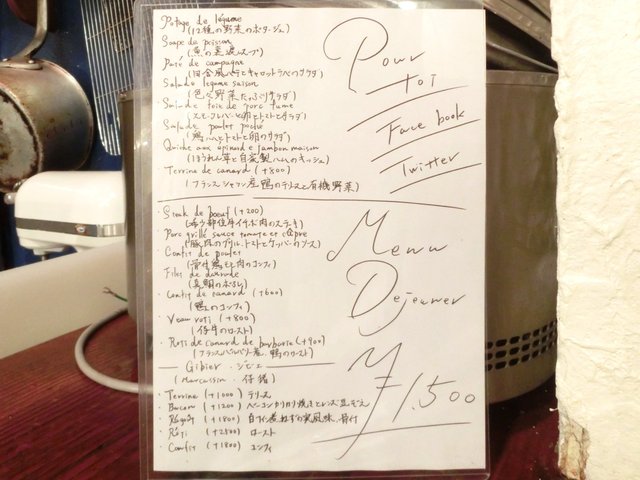 Potage de légume
(12種の野菜のポタージュ)
Soupe de poisson
(魚の スープ)
Paté de campagne
(田舎風パテとキャロットラペのサラダ)
Salade légume saison
(色々野菜たっぷりサラダ)
Salade foie de porc fume
(スモークレバーと卵とトマトのサラダ)
Salade poulet poché
(鶏ハムとトマトと卵のサラダ)
Quiche aux epinard e jambon maison
(ほうれん草と自家製ハムのキッシュ)
Terrine de canard (+800)
(フランス シャラン産 鴨のテリーヌと有機野菜)
・Steak de boeuf (+200)
(希少部位牛イチボ肉のステーキ)
Porc grillé sauce tomate et câpre
(豚 のグリル、トマトとケッパーのソース)
Confit de poulet
(骨付鶏モモ肉のコンフィ)
Filet de daurade
(真鯛のポワレ)
Confit de canard (+600)
(鴨のコンフィ)
・Veau roti (+800)
(仔牛のロースト)
・Roti de canard de barbarie (+900)
(フランスバルバリー産、鴨のロースト)
Gibier ジビエ
(Marcassin 仔猪)
・Terrine (+1000) テリーヌ
・Bacon (+1200) ベーコンカリカリ焼きとレンズ豆
・Ragoût (+1800) 白ワイン煮 風味 骨付
・Rôti (+2500) ロースト
Confit (+1800) コンフィ
Pour
toi
Face book
Twitter
Menu
Dejeuner
¥1.500